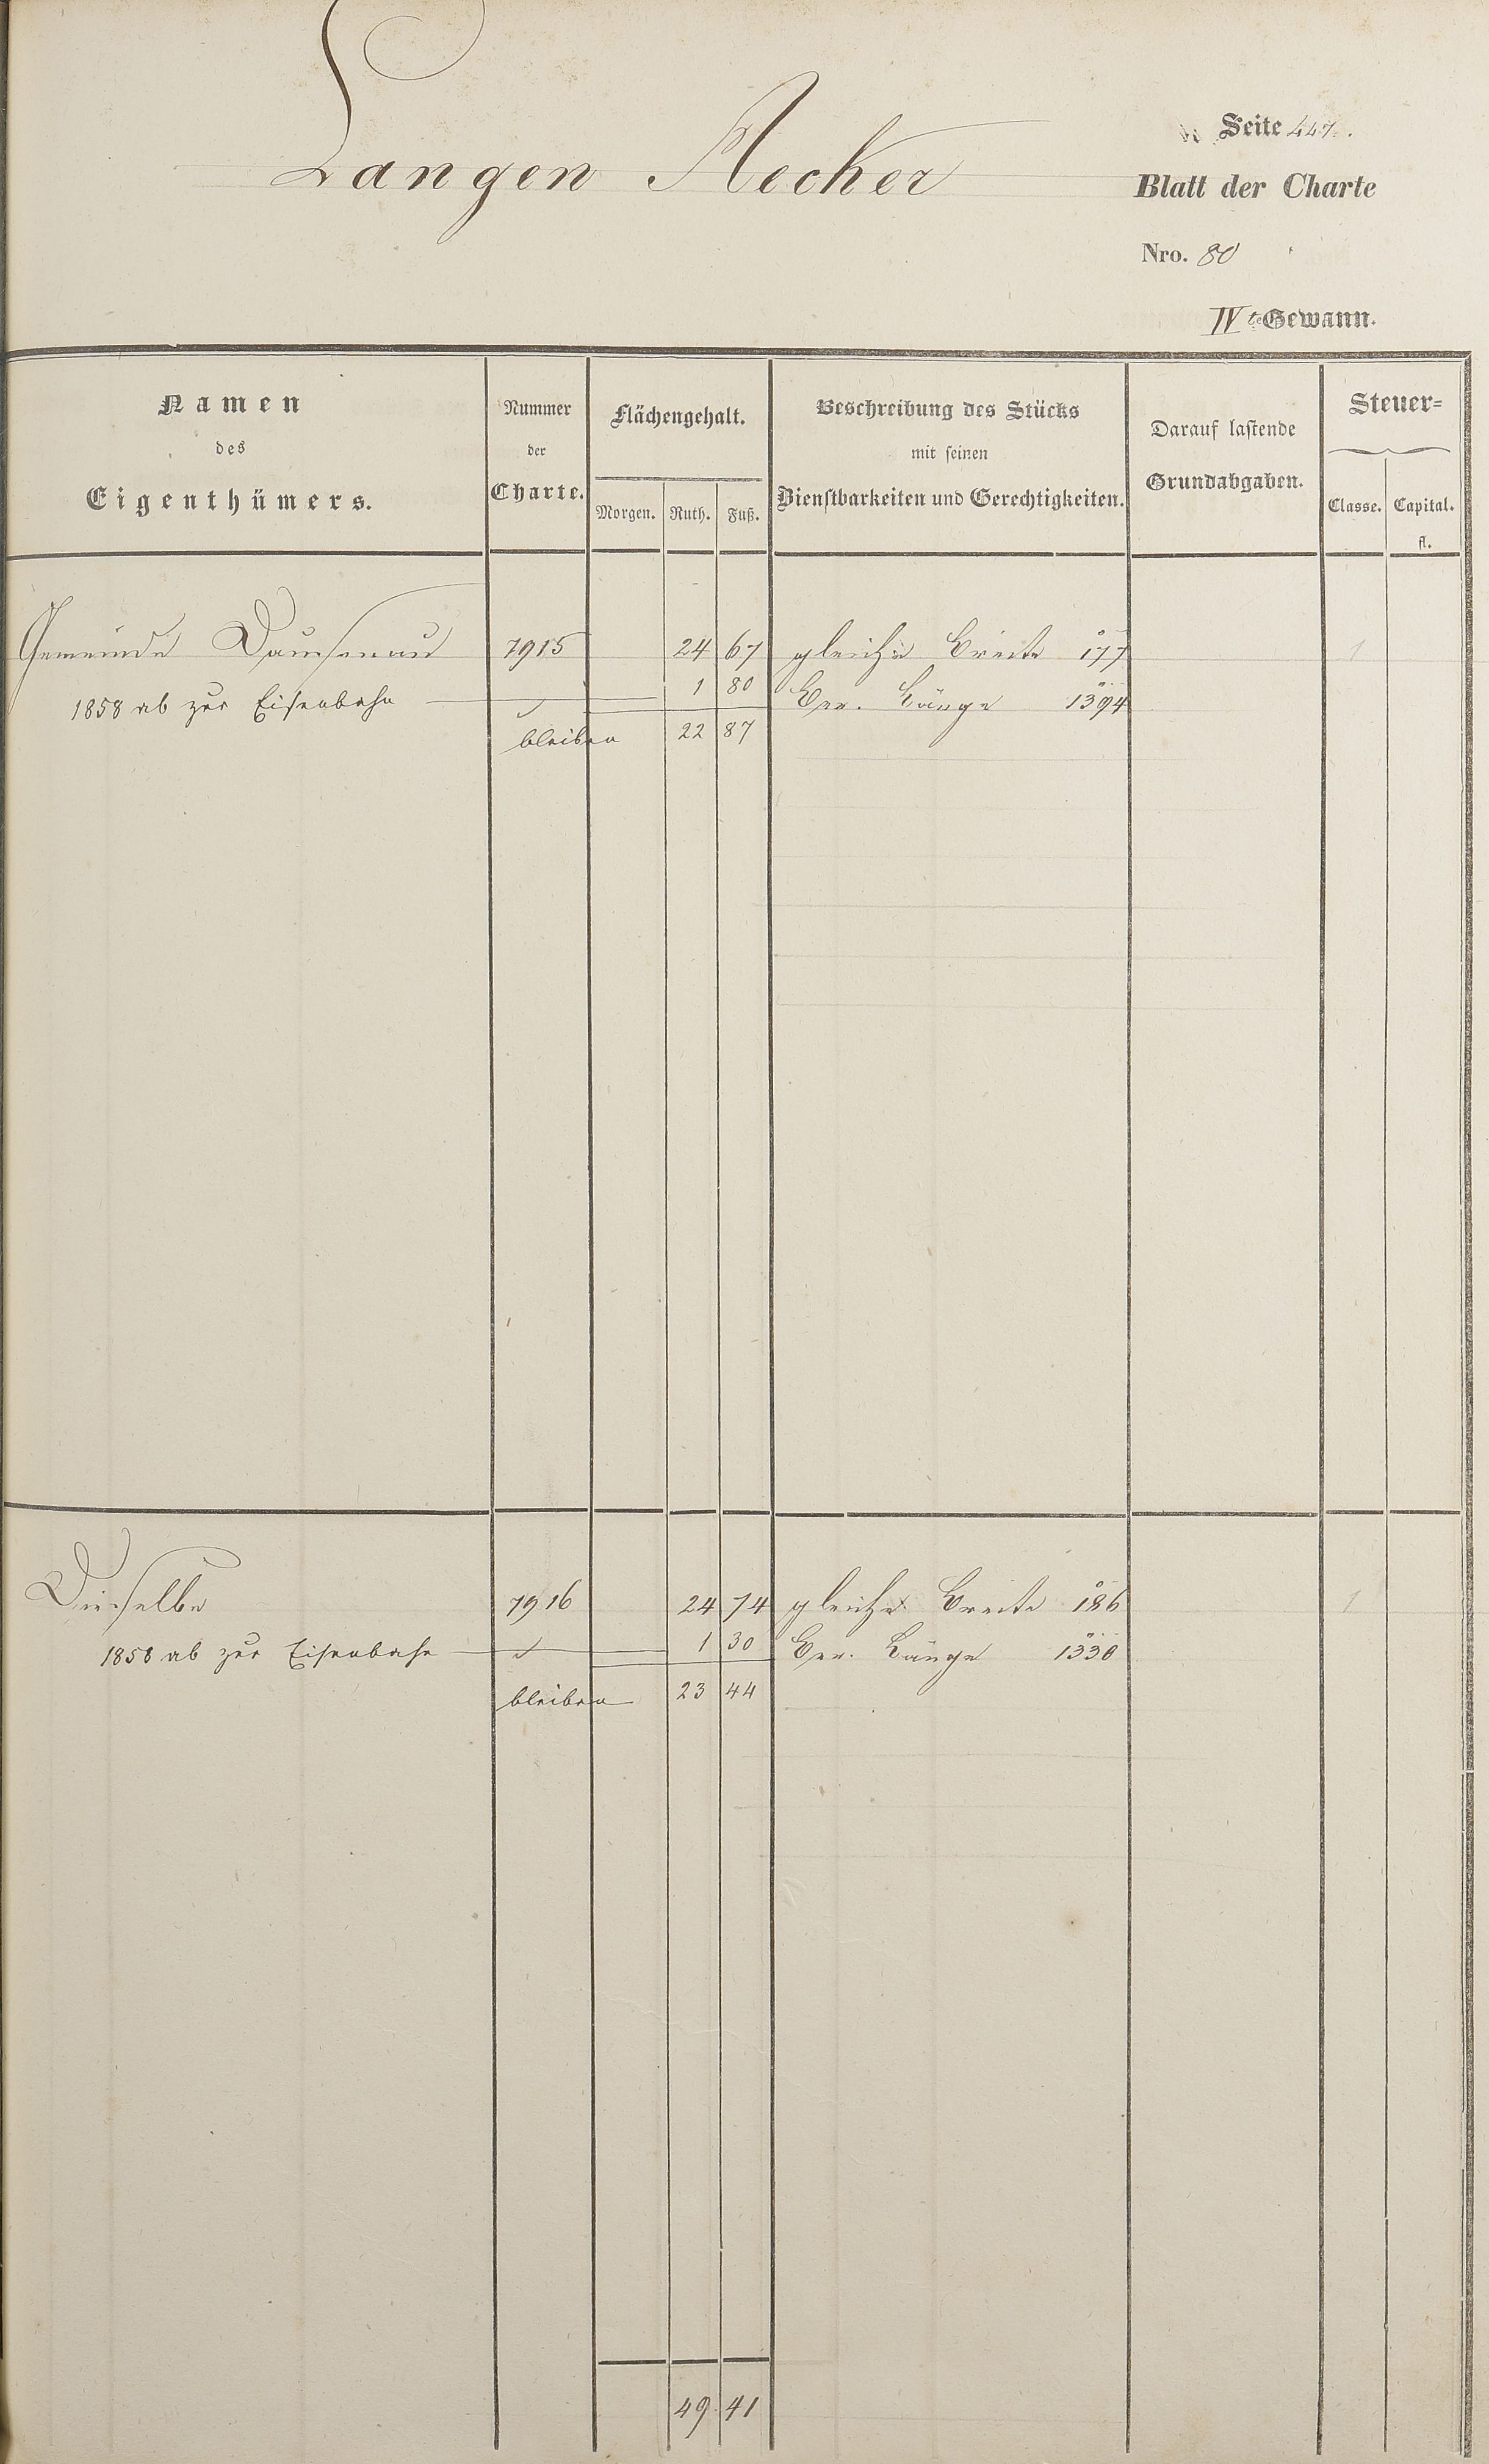 Langen Aecker
Seite 447.
Blatt der Charte
Nro. 80
IVte Gewann.
Namen
des
Eigenthümers.
Nummer
der
Charte.
Flächengehalt.
Morgen. Ruth. Fuß.
Beschreibung des Stücks
mit seinen
Dienstbarkeiten und Gerechtigkeiten.
Darauf lastende
Grundabgaben.
Steuer=
Classe. Capital.
fl.
Gemeinde Dausenau 7915 24 67 gleiche Breite 177 1
1858 ab zur Eisenbahn 1 80 Ber. Länge 1394
bleiben 22 87
Dieselbe 7916 24 74 gleiche Breite 186 1
1858 ab zur Eisenbahn 1 30 Ber. Länge 1330
bleiben 23 44
49 41